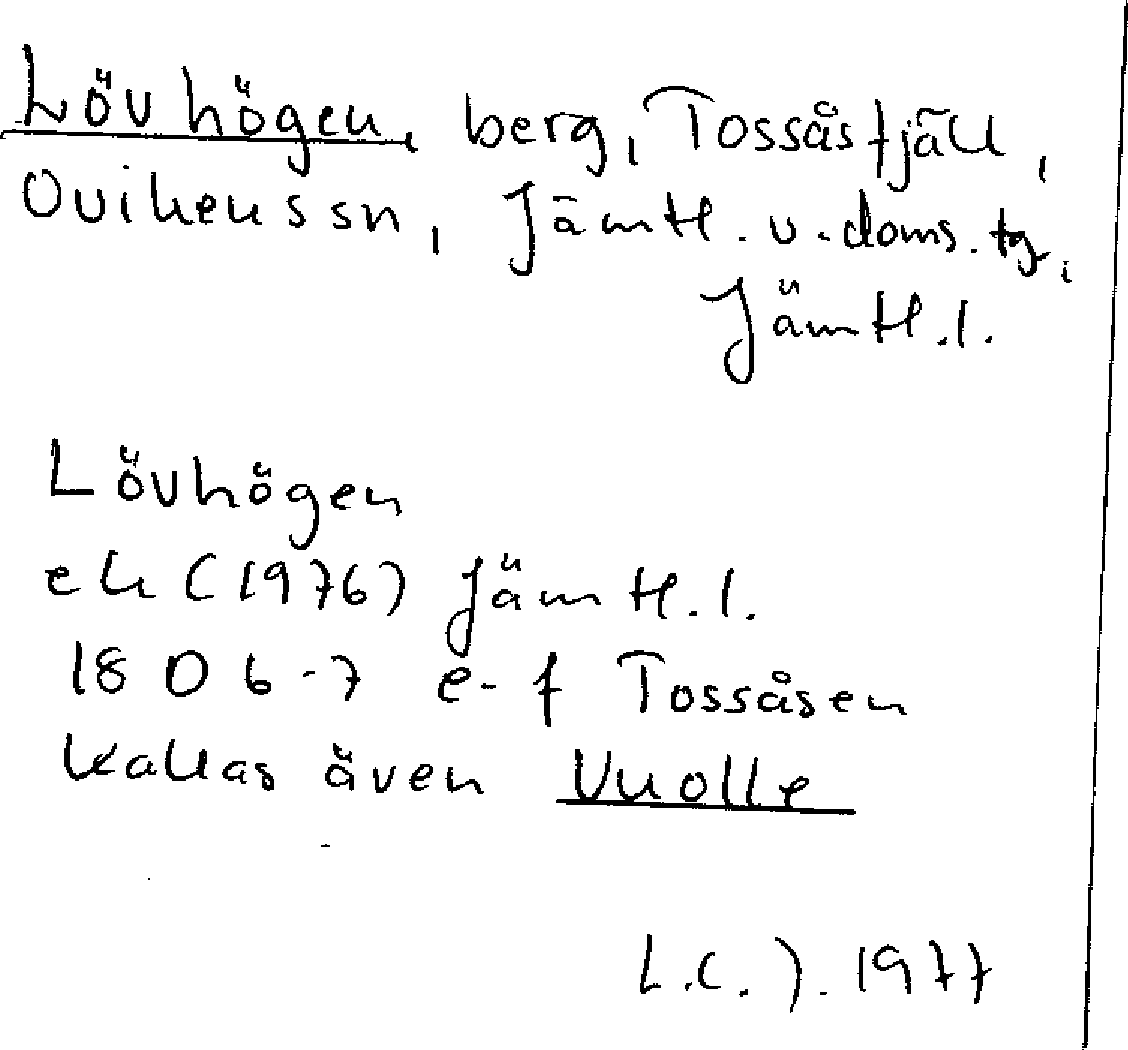 Lövhögen, berg, Tossåsfjäll,
Ovikens sn, Jämtl. v. doms. tg,
Jämtl.l.
Lövhögen
ek (1976) Jämtl.l.
18 D 6-7 e-f Tossåsen
kallas även Vuolle
L.C.J. 1977